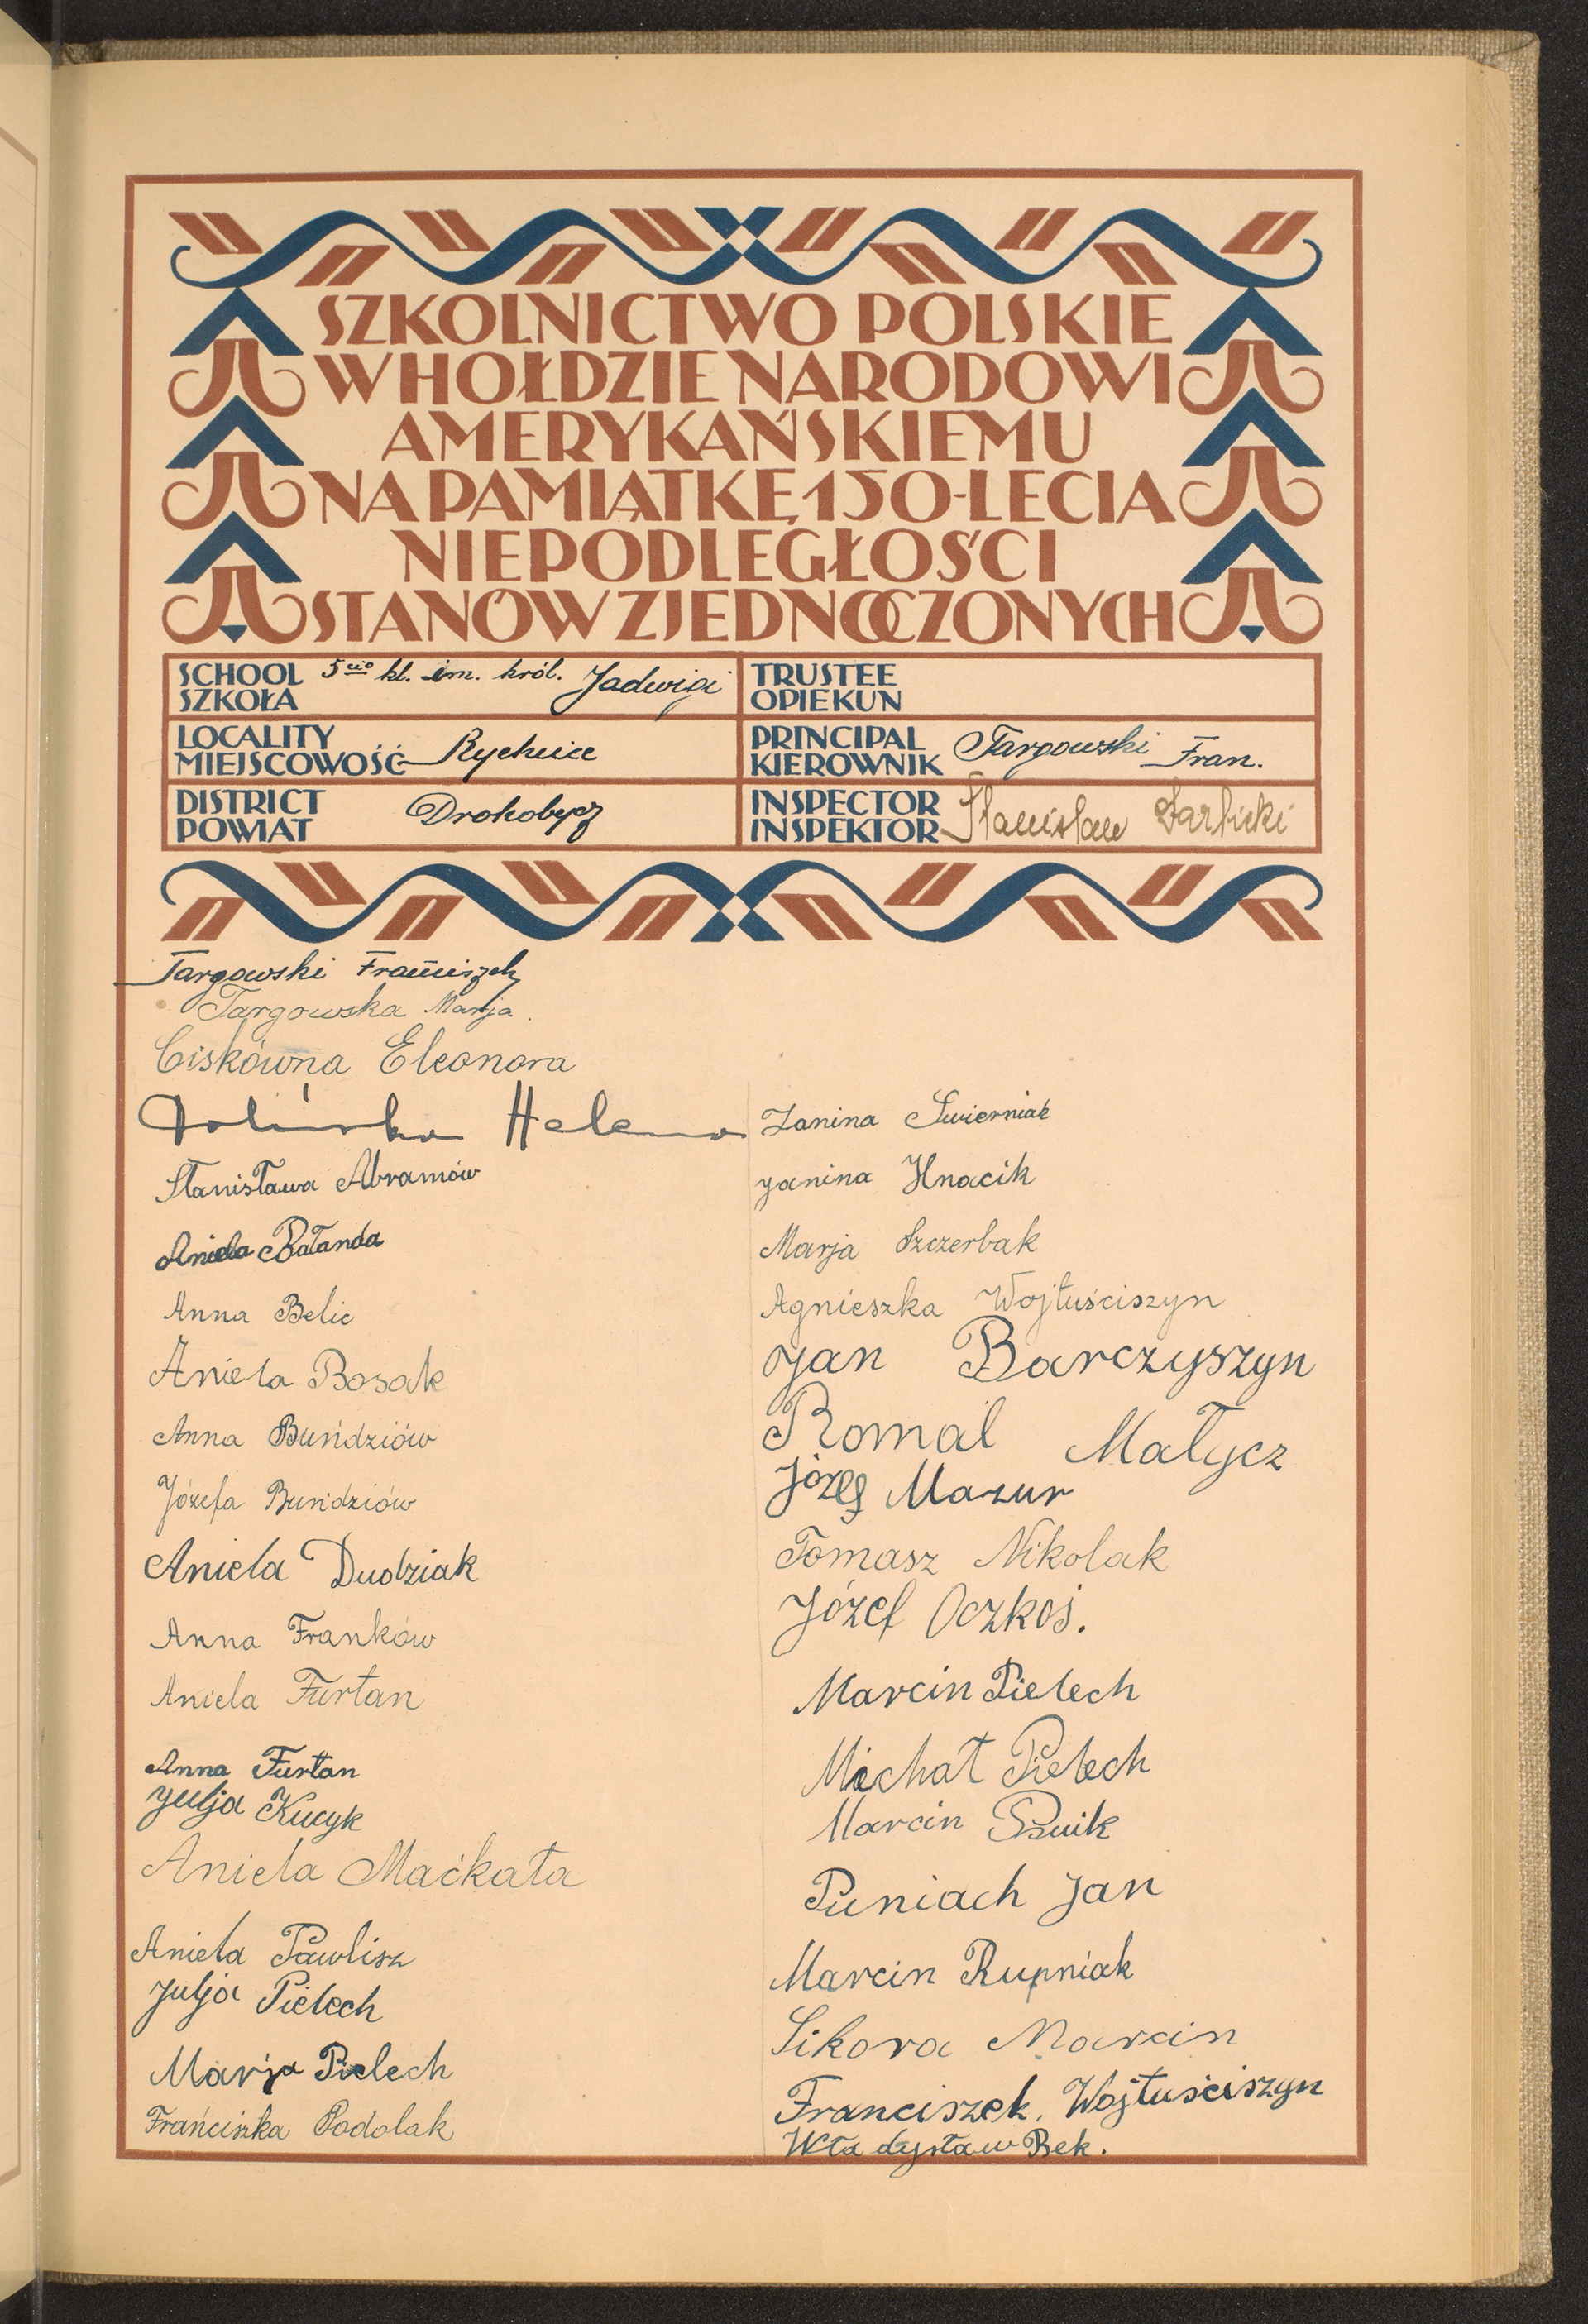 SZKOLNICTWO POLSKIE
W HOŁDZIE NARODOWI
AMERYKAŃSKIEMU
NA PAMIĄTKĘ 150-LECIA
NIEPODLEGŁOŚCI
STANÓW ZJEDNOCZONYCH
SCHOOL
SZKOŁA
5cio kl. im. król. Jadwigi
TRUSTEE
OPIEKUN
LOCALITY
MIEJSCOWOŚĆ
Rychcice
PRINCIPAL
KIEROWNIK
Targowski Fran.
DISTRICT
POWIAT
Drohobycz
INSPECTOR
INSPEKTOR
Stanisław
Targowski Franciszek
Targowska Marja
Ciskówna Eleonora
Helena
Stanisława Abramów
Aniela Bałanda
Anna Belic
Aniela Bosak
Anna Buńdziów
Józefa Buńdziów
Aniela Dudziak
Anna Franków
Aniela Furtan
Anna Furtan
Julja Kucyk
Aniela Maćkała
Aniela Pawlisz
Julja Pielech
Marja Pielech
Franciszka Podolak
Janina Świerniak
Janina Hnacik
Marja Szczerbak
Agnieszka Wojtuściszyn
Jan Barczyszyn
Romal Małycz
Józef Mazur
Tomasz Nikolak
Józef Oczkoś.
Marcin Pielech
Michał Pielech
Marcin
Puniach Jan
Marcin Rupniak
Sikora Marcin
Franciszek. Wojtuściszyn
Władysław Bek.